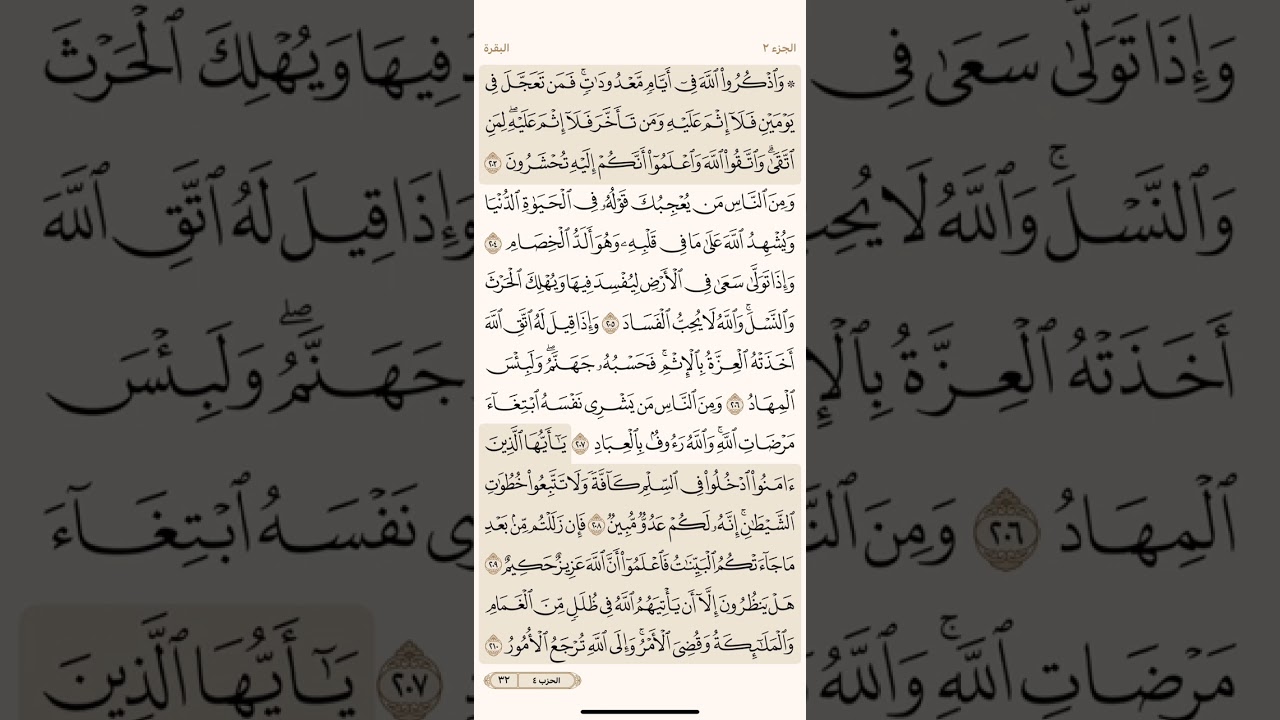 الجزء ٢
البقرة
۞ وَٱذْكُرُوا۟ ٱللَّهَ فِىٓ أَيَّامٍ مَّعْدُودَٰتٍ ۚ فَمَن تَعَجَّلَ فِى
يَوْمَيْنِ فَلَآ إِثْمَ عَلَيْهِ وَمَن تَأَخَّرَ فَلَآ إِثْمَ عَلَيْهِ ۖ لِمَنِ
ٱتَّقَىٰ ۗ وَٱتَّقُوا۟ ٱللَّهَ وَٱعْلَمُوٓا۟ أَنَّكُمْ إِلَيْهِ تُحْشَرُونَ ٢٠٣
وَمِنَ ٱلنَّاسِ مَن يُعْجِبُكَ قَوْلُهُۥ فِى ٱلْحَيَوٰةِ ٱلدُّنْيَا
وَيُشْهِدُ ٱللَّهَ عَلَىٰ مَا فِى قَلْبِهِۦ وَهُوَ أَلَدُّ ٱلْخِصَامِ ٢٠٤
وَإِذَا تَوَلَّىٰ سَعَىٰ فِى ٱلْأَرْضِ لِيُفْسِدَ فِيهَا وَيُهْلِكَ ٱلْحَرْثَ
وَٱلنَّسْلَ ۗ وَٱللَّهُ لَا يُحِبُّ ٱلْفَسَادَ ٢٠٥ وَإِذَا قِيلَ لَهُ ٱتَّقِ ٱللَّهَ
أَخَذَتْهُ ٱلْعِزَّةُ بِٱلْإِثْمِ ۚ فَحَسْبُهُۥ جَهَنَّمُ ۖ وَلَبِئْسَ
ٱلْمِهَادُ ٢٠٦ وَمِنَ ٱلنَّاسِ مَن يَشْرِى نَفْسَهُ ٱبْتِغَآءَ
مَرْضَاتِ ٱللَّهِ ۚ وَٱللَّهُ رَءُوفٌۢ بِٱلْعِبَادِ ٢٠٧ يَٰٓأَيُّهَا ٱلَّذِينَ
ءَامَنُوا۟ ٱدْخُلُوا۟ فِى ٱلسِّلْمِ كَآفَّةً وَلَا تَتَّبِعُوا۟ خُطُوَٰتِ
ٱلشَّيْطَٰنِ ۚ إِنَّهُۥ لَكُمْ عَدُوٌّ مُّبِينٌ ٢٠٨ فَإِن زَلَلْتُم مِّنۢ بَعْدِ
مَا جَآءَتْكُمُ ٱلْبَيِّنَٰتُ فَٱعْلَمُوٓا۟ أَنَّ ٱللَّهَ عَزِيزٌ حَكِيمٌ ٢٠٩
هَلْ يَنظُرُونَ إِلَّآ أَن يَأْتِيَهُمُ ٱللَّهُ فِى ظُلَلٍ مِّنَ ٱلْغَمَامِ
وَٱلْمَلَٰٓئِكَةُ وَقُضِىَ ٱلْأَمْرُ ۚ وَإِلَى ٱللَّهِ تُرْجَعُ ٱلْأُمُورُ ٢١٠
الحزب ٤
٣٢
وَإِذَا تَوَلَّىٰ سَعَىٰ فِى
فِيهَا وَيُهْلِكَ ٱلْحَرْثَ
وَٱلنَّسْلَ ۚ وَٱللَّهُ لَا
وَإِذَا قِيلَ لَهُ ٱتَّقِ ٱللَّهَ
أَخَذَتْهُ ٱلْعِزَّةُ
جَهَنَّمُ ۖ وَلَبِئْسَ
ٱلْمِهَادُ ٢٠٦ وَمِنَ
نَفْسَهُ ٱبْتِغَآءَ
مَرْضَاتِ ٱللَّهِ ۚ وَٱللَّهُ
٢٠٧ يَٰٓأَيُّهَا ٱلَّذِينَ